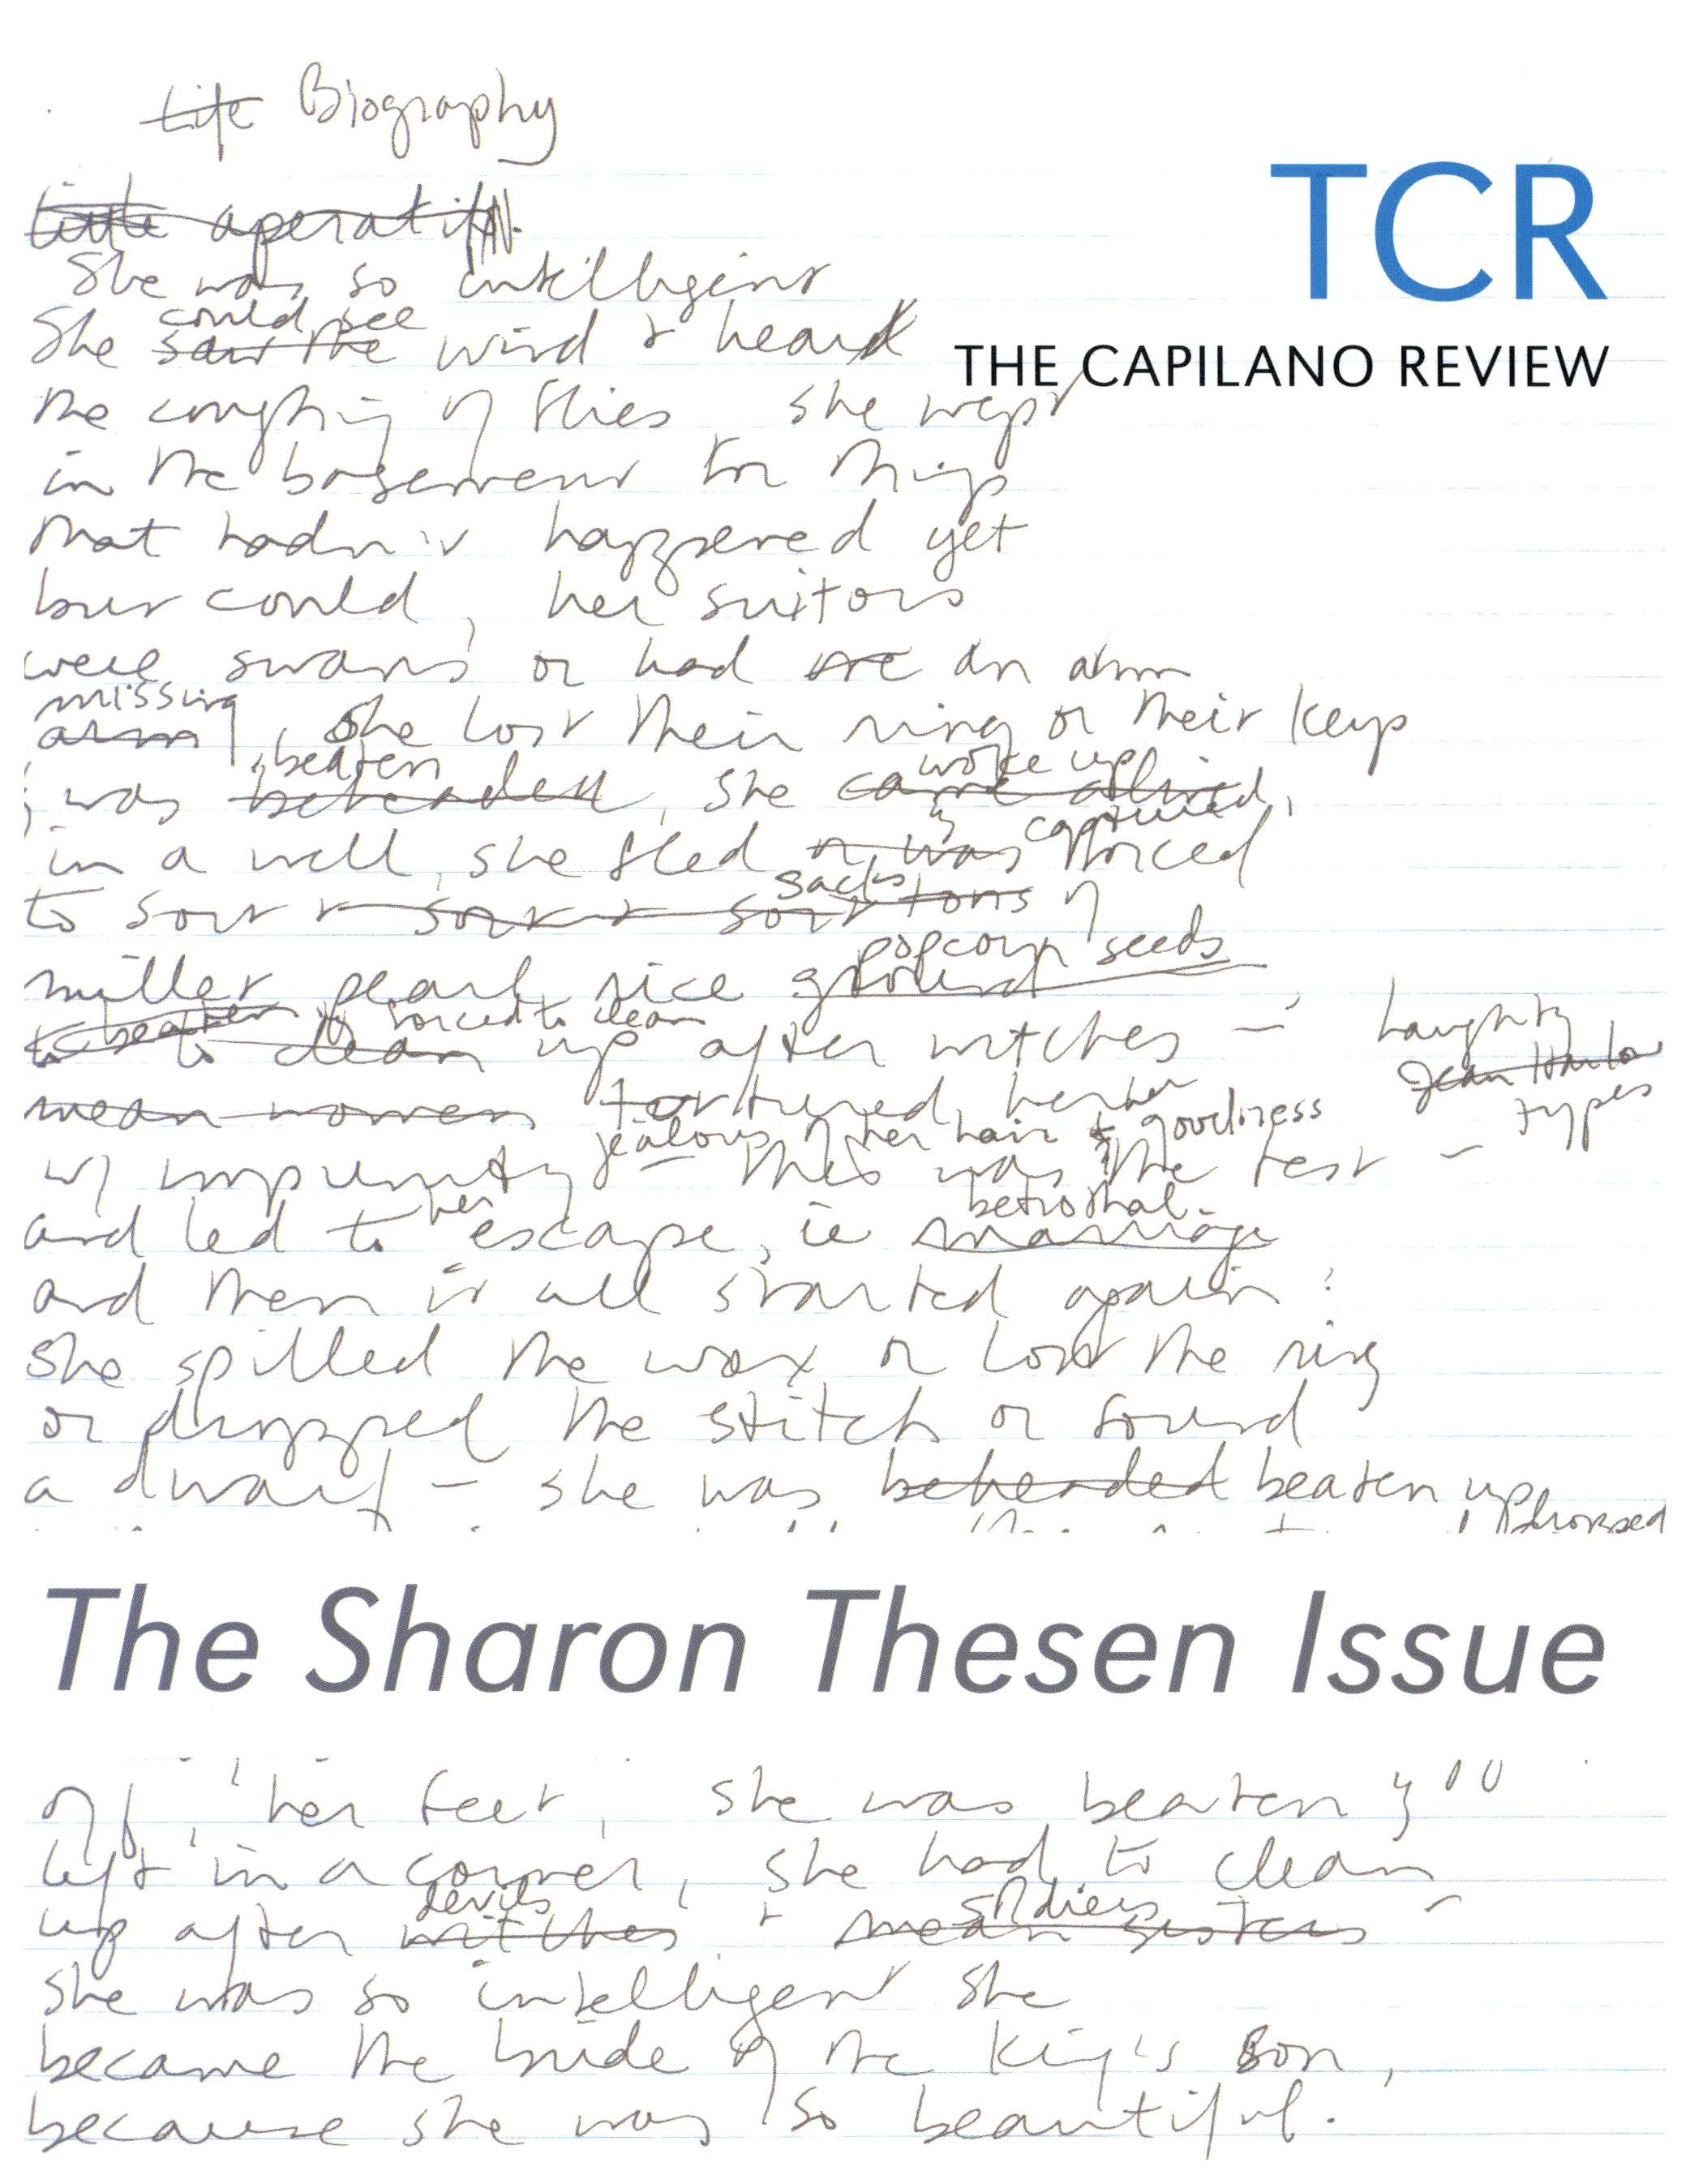 Life Biography
little aperatif
TCR
She was so intelligent
could see
She saw the wind & heard
THE CAPILANO REVIEW
the coughing of flies she wept
in the basement for things
that hadn't happened yet
but could, her suitors
were swans or had one an arm
missing
arm, she lost their ring or their keys
beaten woke up
& was beheaded, she came alive
captured,
in a well, she fled or was & forced
sacks
to sort & sort & sort tons of
popcorn seeds
millet pearl rice ground
forced to clean
to clean up after witches — haughty
Jean Harlow
types
mean women tortured her
jealous of her hair & goodness
w/ impunity this was the test —
her betrothal
and led to escape, ie marriage
and then it all started again:
she spilled the wax or lost the ring
or dropped the stitch or found
a dwarf — she was beheaded beaten up
dropped
The Sharon Thesen Issue
off her feet, she was beaten &
left in a corner, she had to clean
devils soldiers
up after witches & mean sisters —
she was so intelligent she
became the bride of the King's son,
because she was so beautiful.